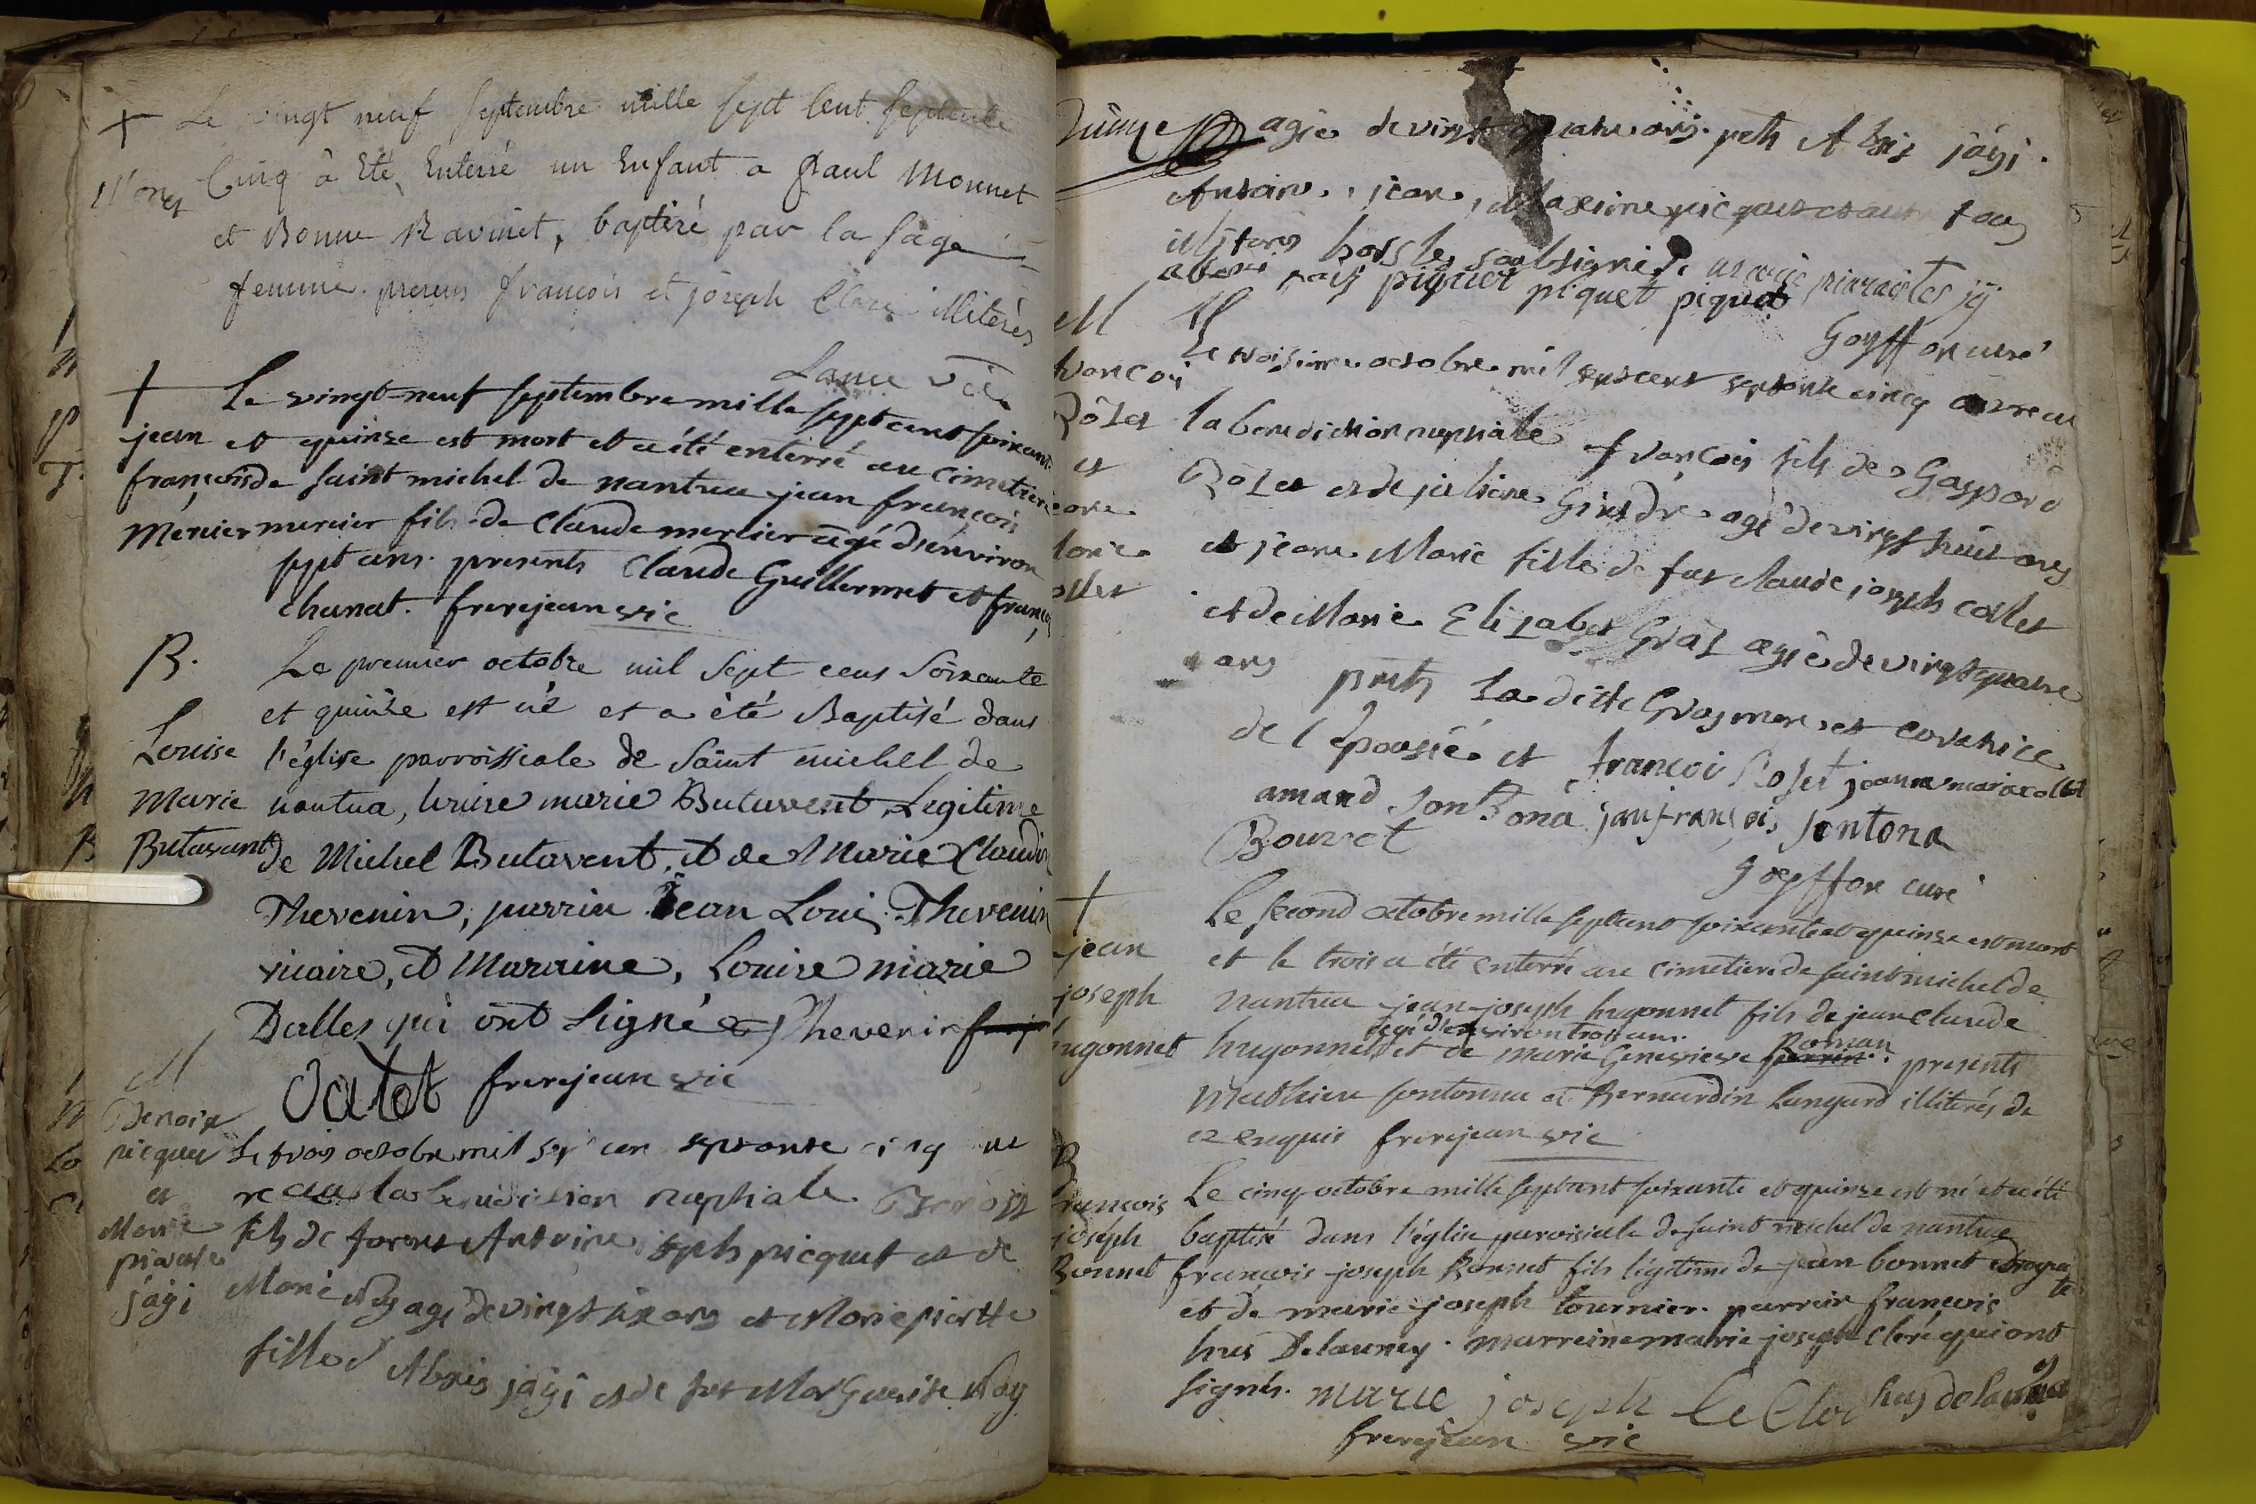 + Le vingt neuf Septembre mille Sept Cent Septente
Monet Cinq â Eté Enterré un Enfant a Paul Monnet
et Bonne Ravinet, baptisé par la Sage
femme. presens françois et joseph illiterés
Lance vic
+ Le vingt-neuf septembre mille sept cent soixante
jean et quinze est mort et a été enterré au cimetiere
françois de saint michel de nantua jean françois
Mercier mercier fils de Claude mercier agé d'environ
sept ans. presents Claude Guillermet et françois
chanat. frerejean vic
B. Le premier octobre mil sept cens soixante
et quinze est né et a été Baptisé dans
Louise l'église parroissiale de Saint michel de
Marie nantua, louise marie Butavent Legitime
Butavant de Michel Butavent, et de Marie Claudine
Thevenin, parrin Jean Louis Thevenin
vicaire, et Maraine, Louise marie
Dallet qui ont Signé Thevenin
Dalet frerejean vic
M
Benoit
picquet Le trois octobre mil sept cen septante cinq ont
et recu la benediction nuptiale Benoit
Marie fils de Antoine joseph picquet et de
pierrette Marie agé de vingt six ans et Marie pierrette
jägi fille d'Alexis jägi et de fut Marguerite
agée de vingt quatre ans. prets Alexis jägi.
Antoine, jean, Maxime picquet tous
illiterés hors les soubsignés.
piquet piquet piquet
Goyffon curé
M Le troisieme octobre mil septcent septante cinq ont recu
françois la benediction nuptiale françois fils de Gaspard
Rôzet Rôzet et de juliene agé de vingt huit ans
et et jeane Marie fille de fut claude joseph collet
jeane et de Marie Elizabet Graz agée de vingt quatre
Marie ans prets La ditte Graz mere et curatrice
collet de l'Epousée et françois Roset jeanne marie collet
amand Sontona jean françois Sontona
Bouvet
Goyffon curé
+ Le second octobre mille sept cent soixante et quinze est mort
jean et le trois a été enterré au cimetiere de saint michel de
joseph nantua jean-joseph hugonnet fils de jean claude
agé d'environ trois ans. Roman
hugonnet hugonnet et de marie Genevieve perrin. presents
Mathieu sontonna et Bernardin Lançard illiterés de
ce enquis frerejean vic
B
françois Le cinq octobre mille sept cent soixante et quinze est né et a été
joseph baptisé dans l'église paroissiale de saint michel de nantua
Bonnet françois joseph Bonnet fils légitime de jean bonnet
et de marie joseph tournier. parrain françois
hus Delauney. marreine marie joseph Cleré qui ont
signés. marie joseph hus delauney
frerejean vic